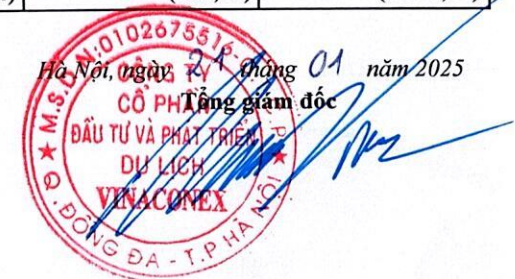 Hà Nội, ngày 21 tháng 01 năm 2025
Tổng giám đốc
M.S.D.N:0102675516
CÔNG TY
CỔ PHẦN
ĐẦU TƯ VÀ PHÁT TRIỂN
DU LỊCH
VINACONEX
Q. ĐỐNG ĐA - T.P HÀ NỘI